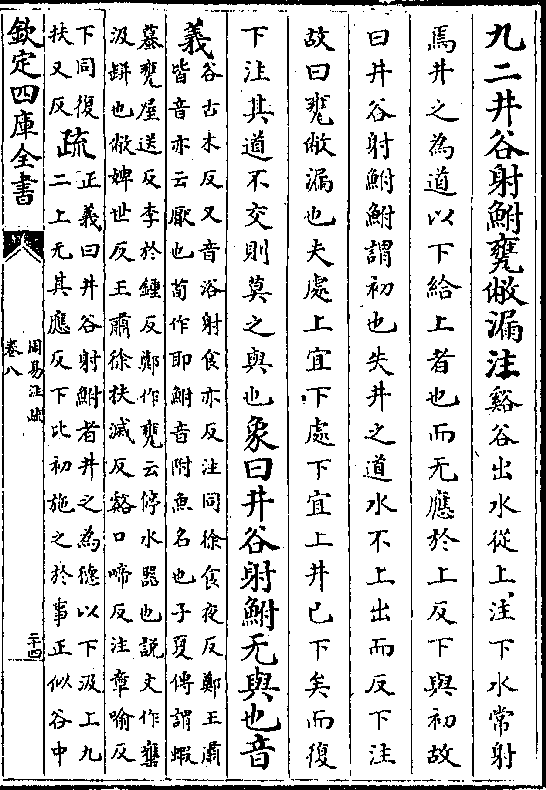 九二井谷射鮒甕敝漏注谿谷出水從上注下水常射
焉井之為道以下給上者也而无應於上反下與初故
曰井谷射鮒鮒謂初也失井之道水不上出而反下注
故曰甕敝漏也夫處上宜下處下宜上井已下矣而復
下注其道不交則莫之與也象曰井谷射鮒无與也音
義谷古木反又音浴射食亦反注同徐食夜反鄭王肅
皆音亦云厭也荀作耶鮒音附魚名也子夏傳謂蝦
蟇甕屋送反李於鍾反鄭作甕云停水器也説文作䍃
汲缾也敝婢世反王肅徐扶滅反谿口啼反注章喻反
下同復
扶又反疏正義曰井谷射鮒者井之為德以下汲上九
二上无其應反下比初施之於事正似谷中
欽定四庫全書
周易注疏
卷八
二十四